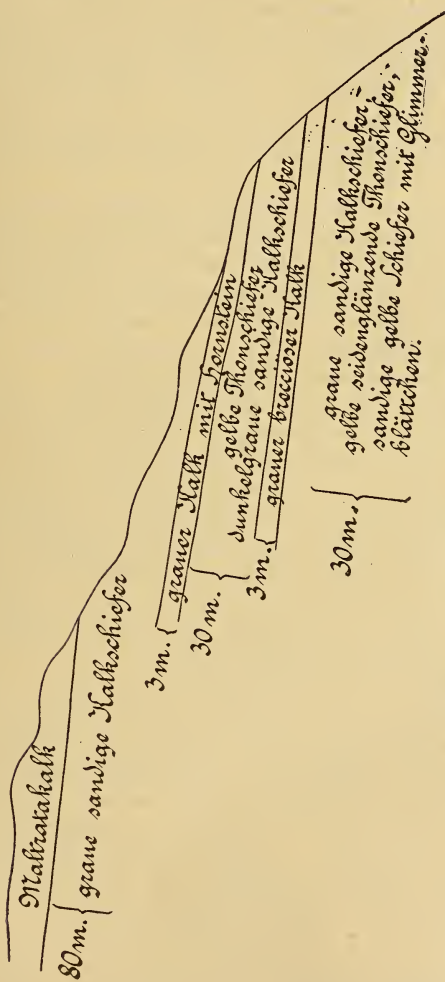 Maltratakalk
80 m. { graue sandige Kalkschiefer
3 m. { grauer Kalk mit Hornstein
30 m. {
gelbe Thonschiefer
dunkelgraue sandige Kalkschiefer
3 m. { grauer breccioser Kalk
30 m. {
graue sandige Kalkschiefer,-
gelbe seidenglänzende Thonschiefer,-
sandige gelbe Schiefer mit Glimmer,-
blättchen.